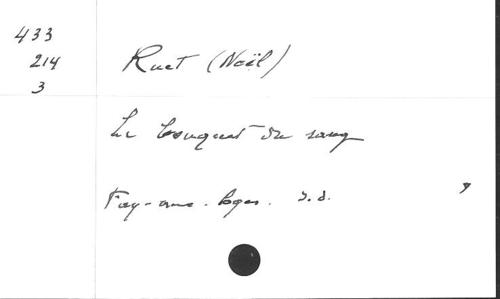 433
214
3
Ruet (Noël)
Le bouquet du sang
Fay-aux-loges. s.d.